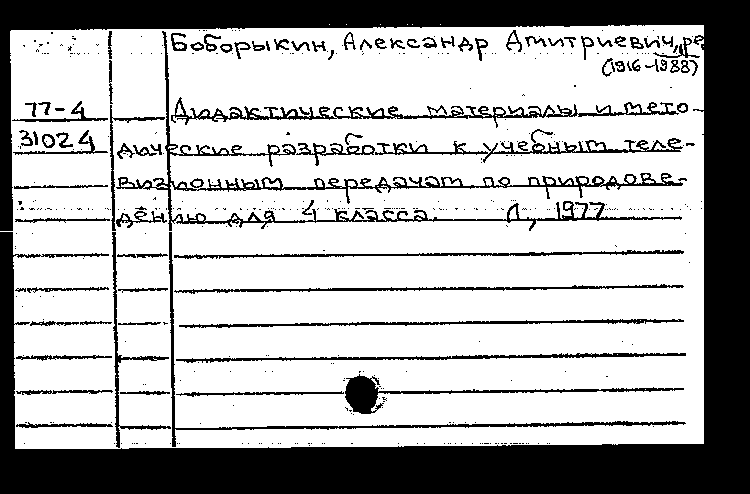 Боборыкин, Александр Дмитриевич, ре
(1916-1988)
77-4 Дидактические материалы и мето-
31024 дические разработки к учебным теле-
визионным передачам по природове-
дению для 4 класса. Л., 1977